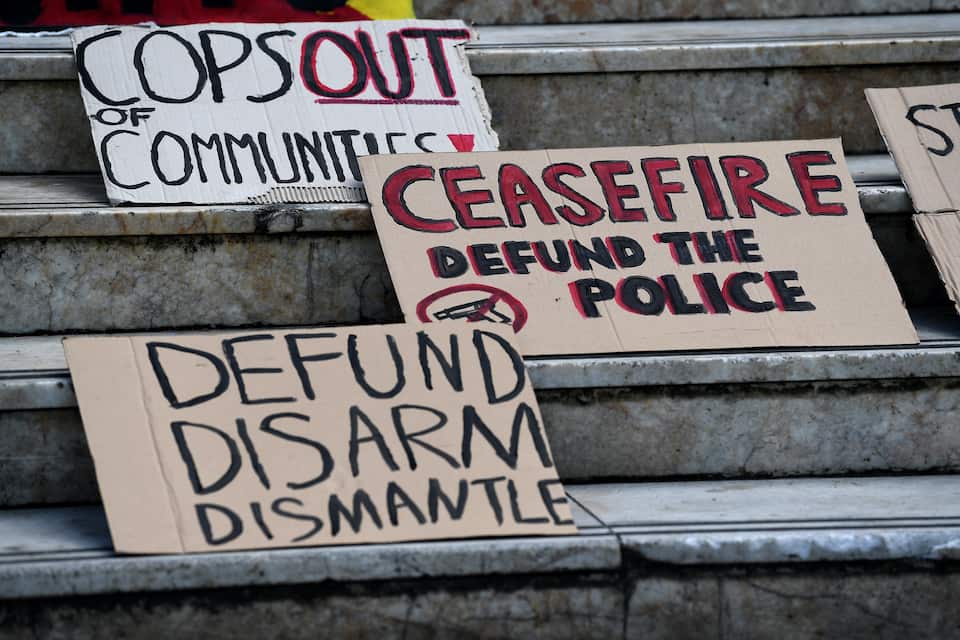 COPS OUT
OF
COMMUNITIES
CEASEFIRE
DEFUND THE
POLICE
DEFUND
DISARM
DISMANTLE
ST